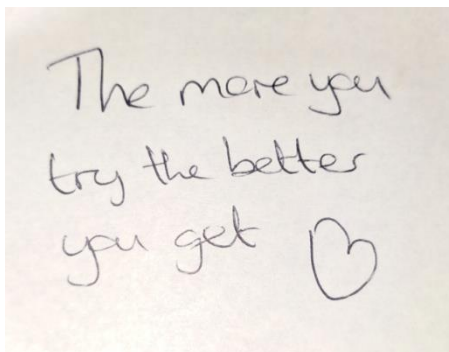 The more you
try the better
you get ♡